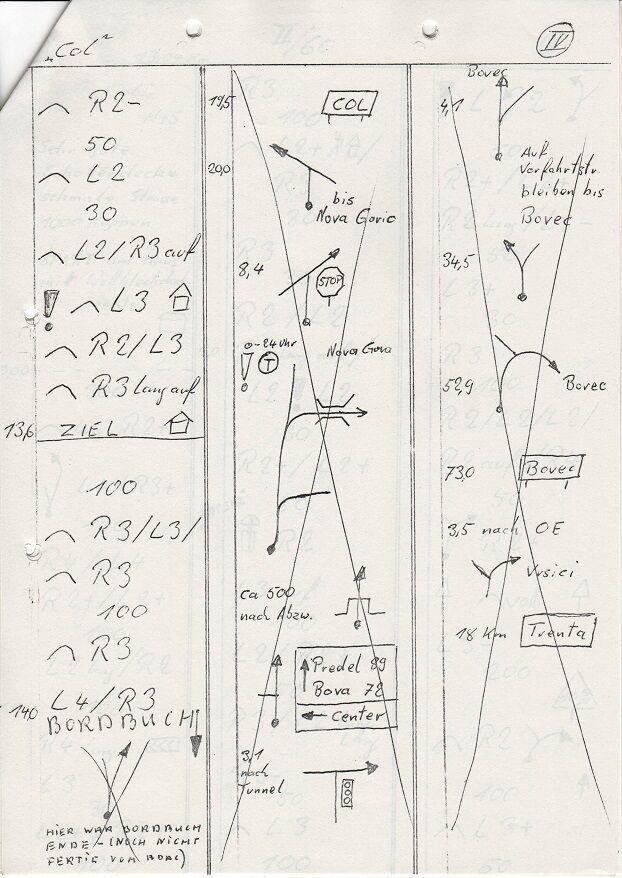 „Col"
IV
R2-
50
L2
30
L2/R3 auf
! L3
R2/L3
R3 lang auf
13,6 ZIEL
100
R3/L3/
R3
100
R3
L4/R3
14,0
BORDBUCH
HIER WAR BORDBUCH
ENDE - (NOCH NICHT
FERTIG VOM BOAL)
19,5 COL
20,0
bis
Nova Gorica
8,4
STOP
0-24 Uhr
! T
Nova Gora
ca 500
nach Abzw.
Predel 89
Bova 72
Center
3,1
nach
Tunnel
Bovec
4,1
Auf
Vorfahrtstr.
bleiben bis
Bovec
34,5
52,9
Bovec
73,0 Bovec
3,5 nach OE
Vrsici
18 Km Trenta